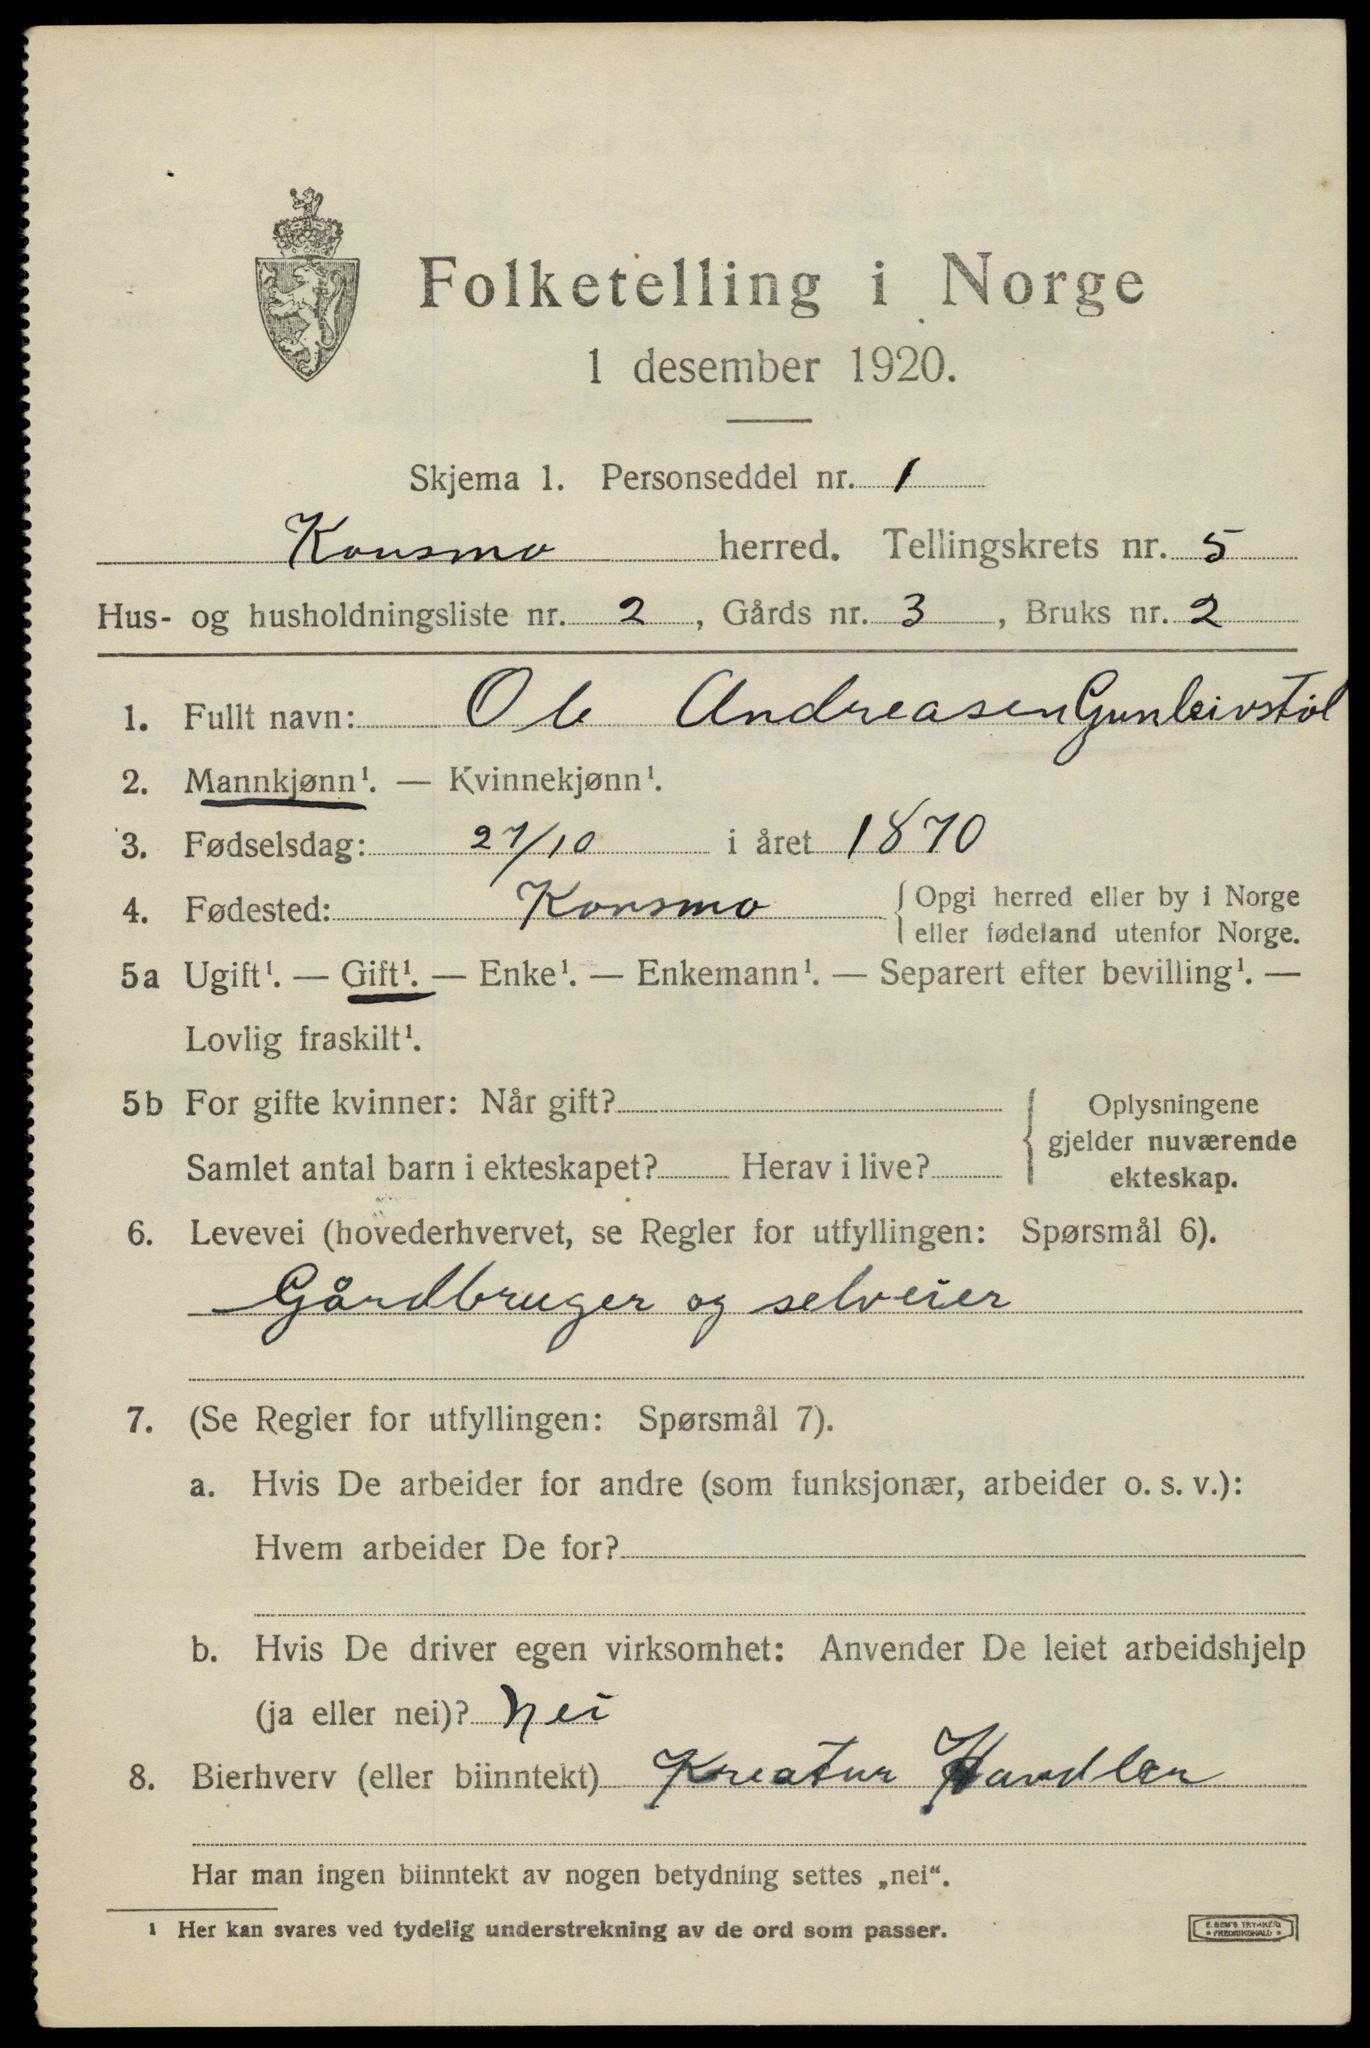 Folketelling i Norge
1 desember 1920.
Skjema 1. Personseddel nr. 1
Konsmo herred. Tellingskrets nr. 5
Hus- og husholdningsliste nr. 2, Gårds nr. 3, Bruks nr. 2
1. Fullt navn: Ole Andreasen Gunleivstøl
2. Mannkjønn¹. — Kvinnekjønn¹.
3. Fødselsdag: 27/10 i året 1870
4. Fødested: Konsmo { Opgi herred eller by i Norge
eller fødeland utenfor Norge.
5a Ugift¹. — Gift¹. — Enke¹. — Enkemann¹. — Separert efter bevilling¹. —
Lovlig fraskilt¹.
5b For gifte kvinner: Når gift? { Oplysningene
gjelder nuværende
Samlet antal barn i ekteskapet? Herav i live? ekteskap.
6. Levevei (hovederhvervet, se Regler for utfyllingen: Spørsmål 6).
Gårdbruger og selveier
7. (Se Regler for utfyllingen: Spørsmål 7).
a. Hvis De arbeider for andre (som funksjonær, arbeider o. s. v.):
Hvem arbeider De for?
b. Hvis De driver egen virksomhet: Anvender De leiet arbeidshjelp
(ja eller nei)? Nei
8. Bierhverv (eller biinntekt) Kreatur Handler
Har man ingen biinntekt av nogen betydning settes „nei“.
¹ Her kan svares ved tydelig understrekning av de ord som passer.
E. SEM'S TRYKKERI
* FREDRIKSHALD *